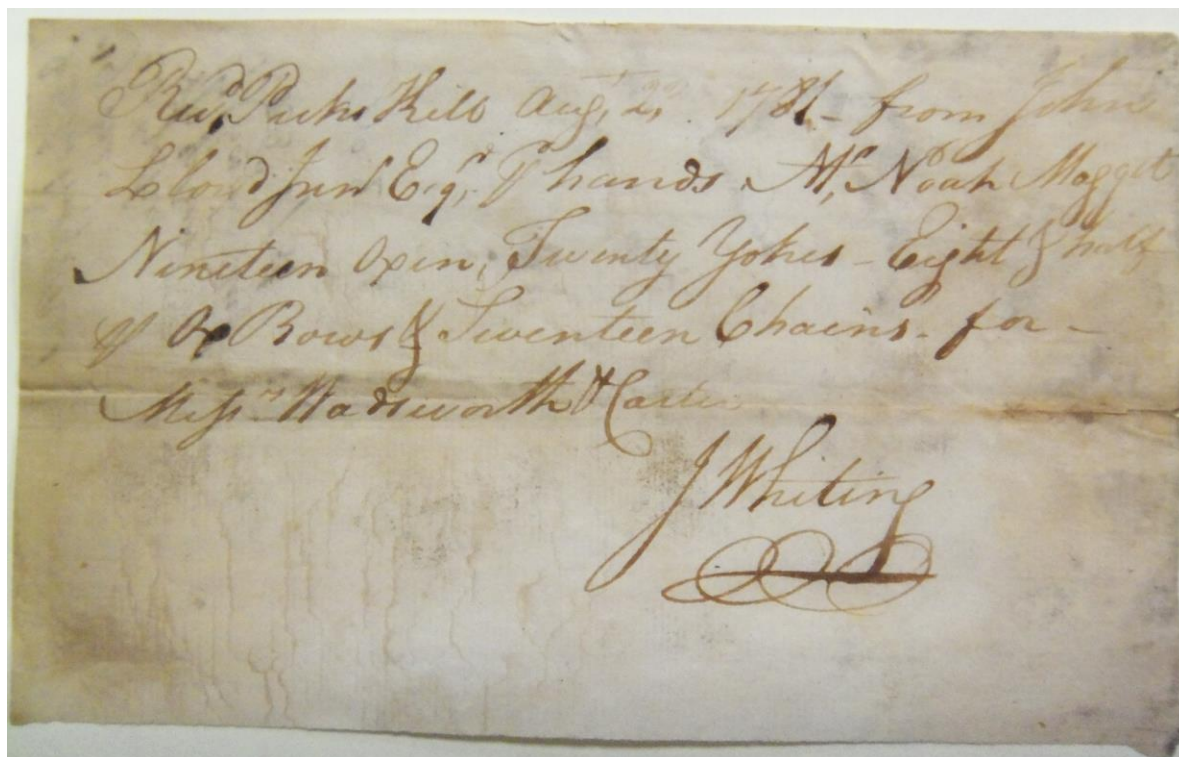 Recd. Peeks Kill Augt. 2d. 1781 - from John
Lloyd Junr Esqr. Pr hands Mr. Noah
Nineteen Oxen, Twenty Yokes - Eight & half
Ox Bows & Seventeen Chains - for -
Messrs Wadsworth & Carter
J Whiting